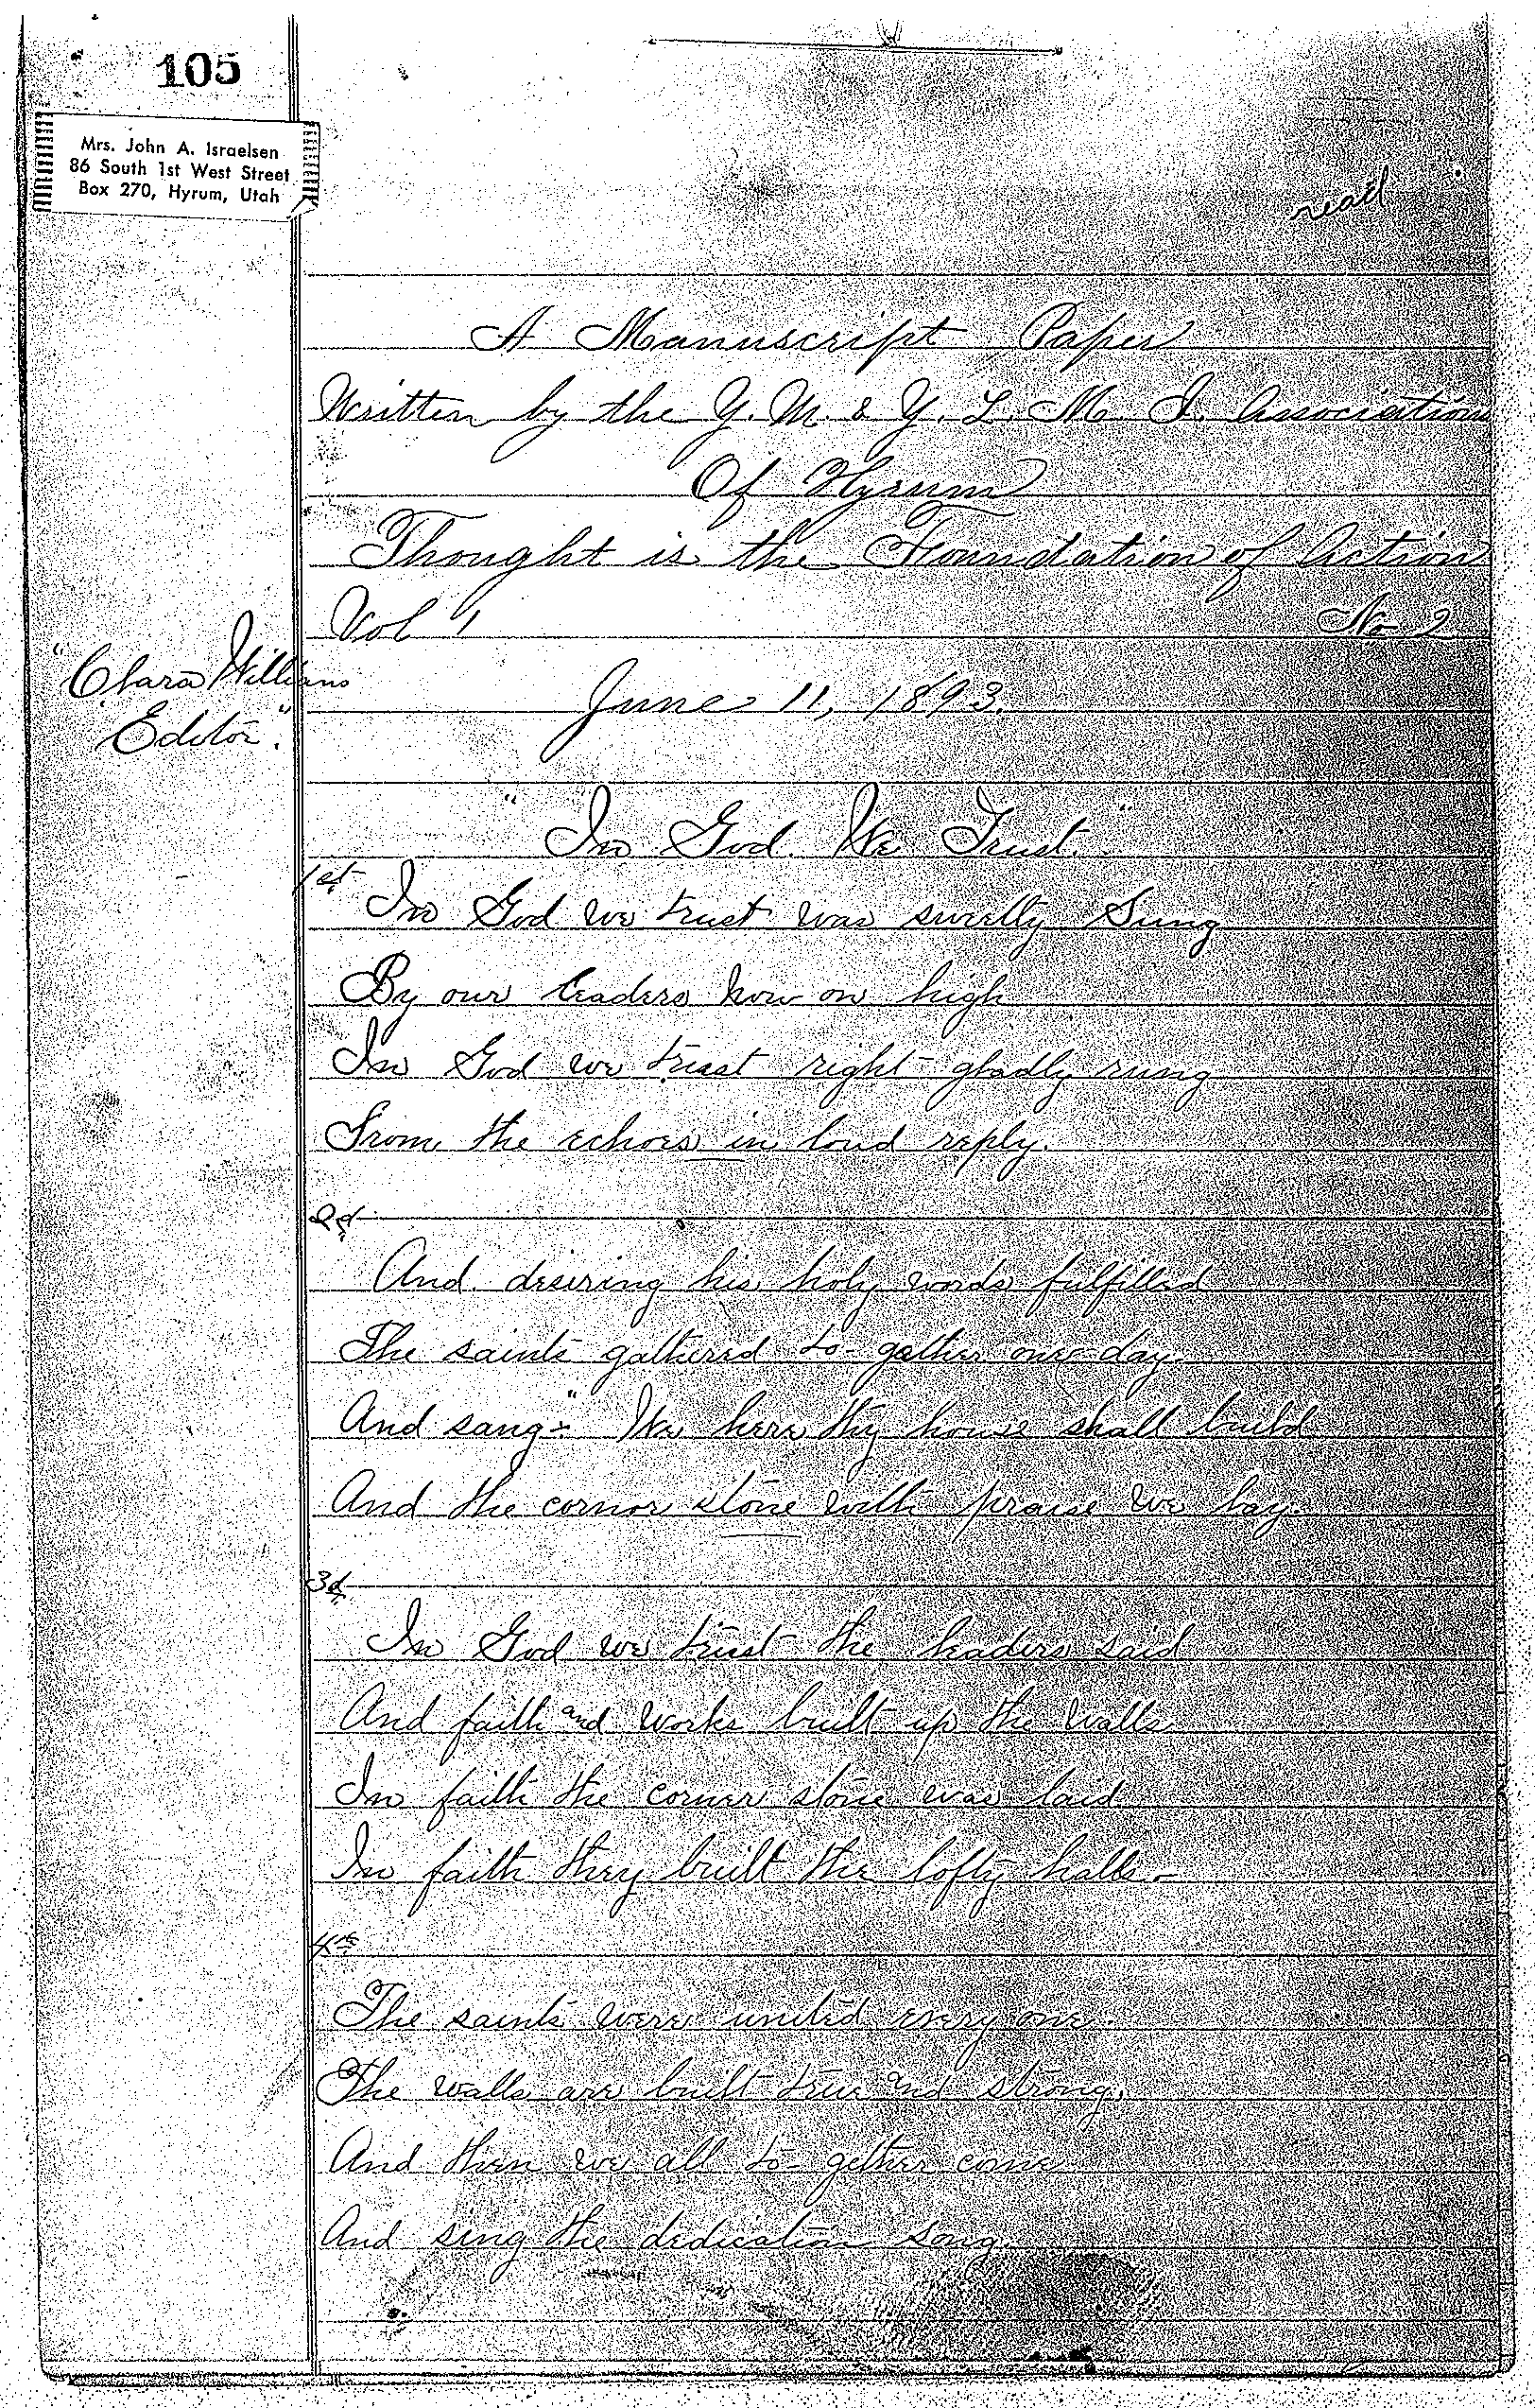 105
Mrs. John A. Israelsen
86 South 1st West Street
Box 270, Hyrum, Utah
read
A Manuscript Paper
Written by the Y. M. & Y. L. M. I. Association
Of Hyrum
Thought is the Foundation of Action
Vol 1 No 2
"Clara Williams
Editor."
June 11, 1893.
"In God. We Trust."
1st
In God we trust was sweetly Sung
By our leaders now on high
In God we trust right gladly rung
From the echoes in loud reply.
2d
And desiring his holy words fulfilled
The saints gathered to-gather one day.
And sang:" We here thy house shall build
And the cornor stone with praise we lay.
3d
In God we trust the leaders said
And faith and works built up the walls
In faith the corner stone was laid
In faith they built the lofty halls.
4th
The saints were united every one.
The walls are built true and strong,
And then we all to-gether come
And sing the dedication song.